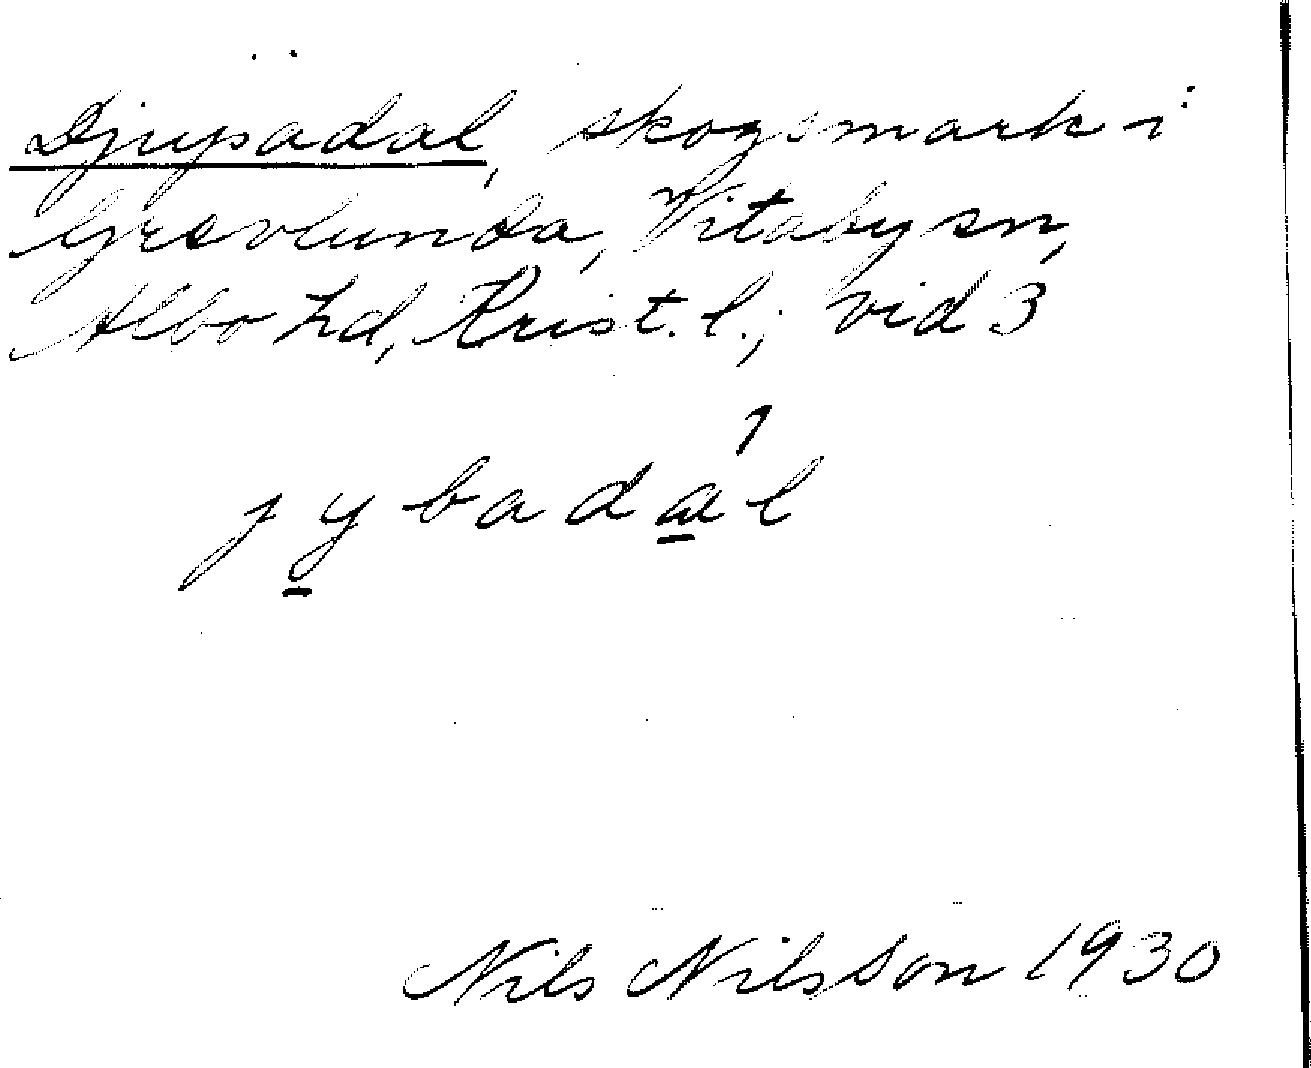 Djupadal, skogsmark i
Grevlunda, Vitaby sn,
Albo hd, Krist. l.; vid 3
jybadál
Nils Nilsson 1930